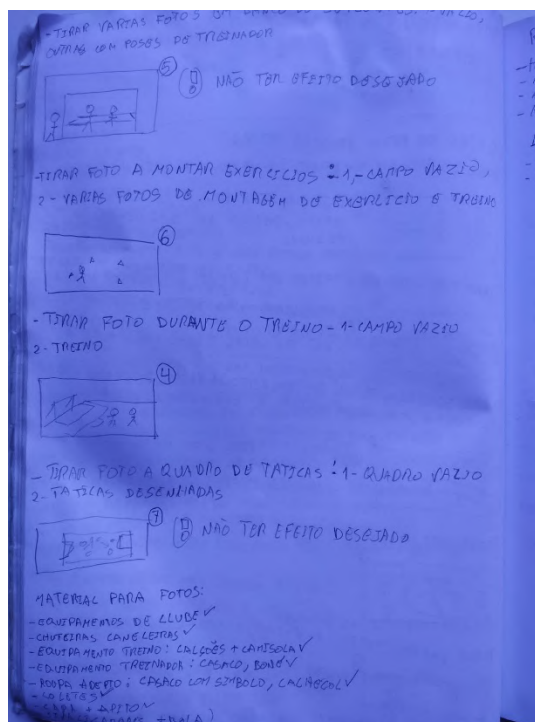 - TIRAR VARIAS FOTOS
OUTRAS COM POSES DE TREINADOR
5
! NÃO TER EFEITO DESEJADO
- TIRAR FOTO A MONTAR EXERCICIOS : 1,- CAMPO VAZIO,
2 - VARIAS FOTOS DE MONTAGEM DE EXERCICIO E TREINO
6
- TIRAR FOTO DURANTE O TREINO - 1 - CAMPO VAZIO
2 - TREINO
4
- TIRAR FOTO A QUADRO DE TATICAS : 1 - QUADRO VAZIO
2. TATICAS DESENHADAS
7
! NÃO TER EFEITO DESEJADO
MATERIAL PARA FOTOS:
- EQUIPAMENTOS DE CLUBE ✓
- CHUTEIRAS CANELEIRAS ✓
- EQUIPAMENTO TREINO : CALÇÕES + CAMISOLA ✓
- EQUIPAMENTO TREINADOR : CASACO, BONÉ ✓
- ROUPA ADEPTO : CASACO COM SIMBOLO, CACHECOL ✓
- COLETES ✓
+ APITO ✓